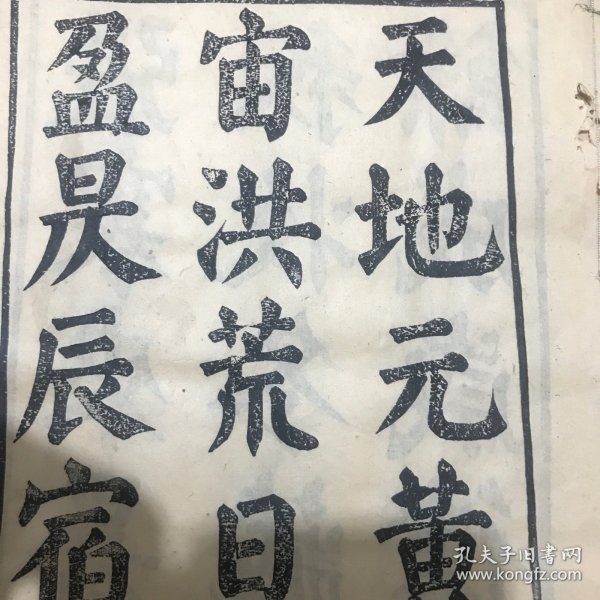 天地元黄
宙洪荒日
盈昃辰宿
孔夫子旧书网
www.kongfz.com